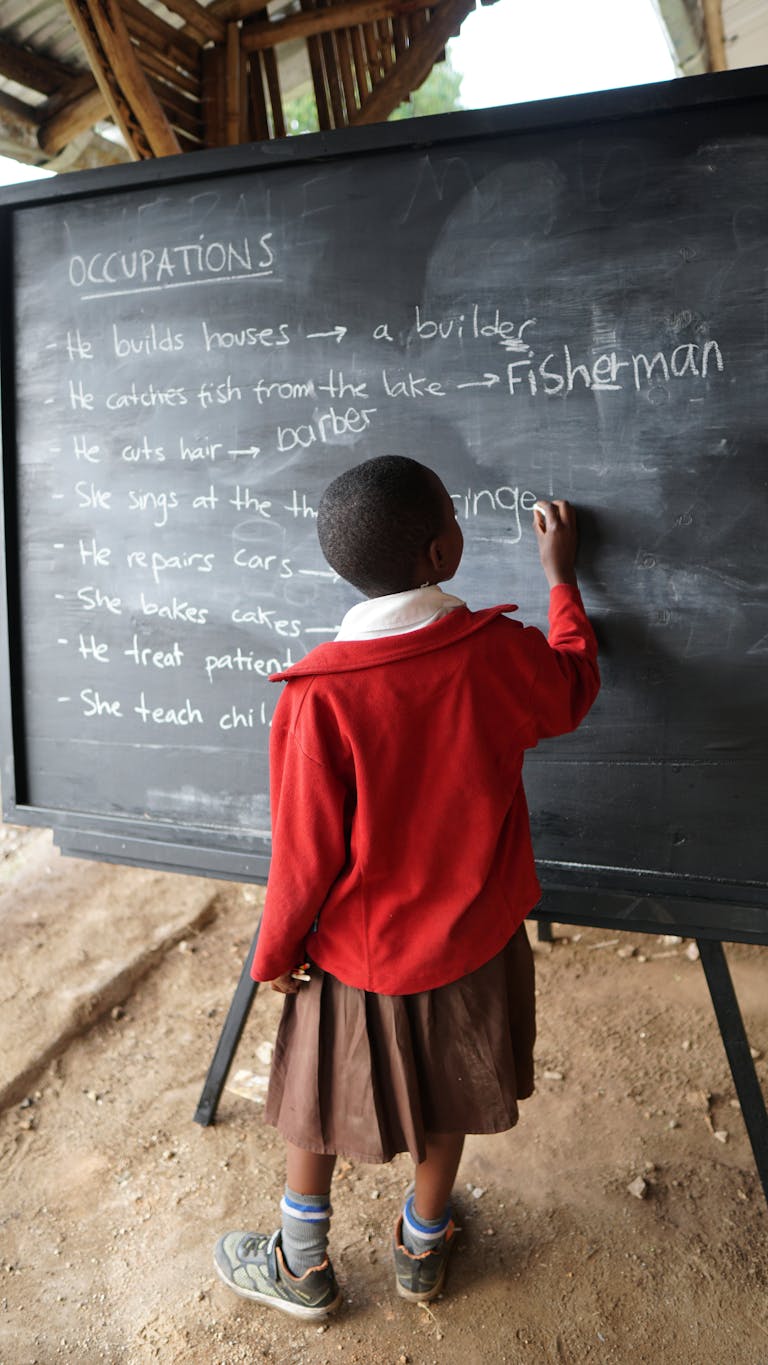 OCCUPATIONS
- He builds houses → a builder
- He catches fish from the lake → Fisherman
- He cuts hair → barber
- She sings at the inge
- He repairs cars →
- She bakes cakes →
- He treat patient
- She teach